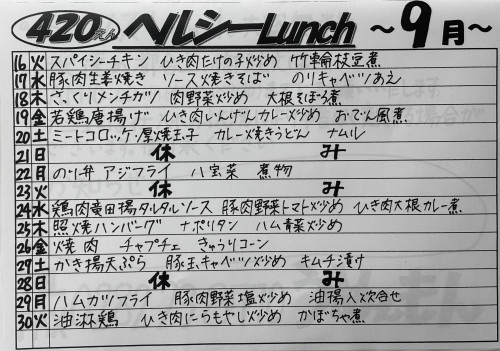 420えん ヘルシーLunch ～9月～
16 火 スパイシーチキン ひき肉たけの子炒め 竹輪枝豆煮
17 水 豚肉生姜焼き ソース焼きそば のりキャベツあえ
18 木 ざっくりメンチカツ 肉野菜炒め 大根そぼろ煮
19 金 若鶏唐揚げ ひき肉いんげんカレー炒め おでん風煮
20 土 ミートコロッケ・厚焼玉子 カレー焼きうどん ナムル
21 日 休み
22 月 のり弁 アジフライ 八宝菜 煮物
23 火 休み
24 水 鶏肉竜田揚タルタルソース 豚肉野菜トマト炒め ひき肉大根カレー煮
25 木 照焼ハンバーグ ナポリタン ハム青菜炒め
26 金 焼肉 チャプチェ きゅうりコーン
29 土 かき揚天ぷら 豚玉キャベツ炒め キムチ漬け
28 日 休み
29 月 ハムカツフライ 豚肉野菜塩炒め 油揚入炊合せ
30 火 油淋鶏 ひき肉にらもやし炒め かぼちゃ煮